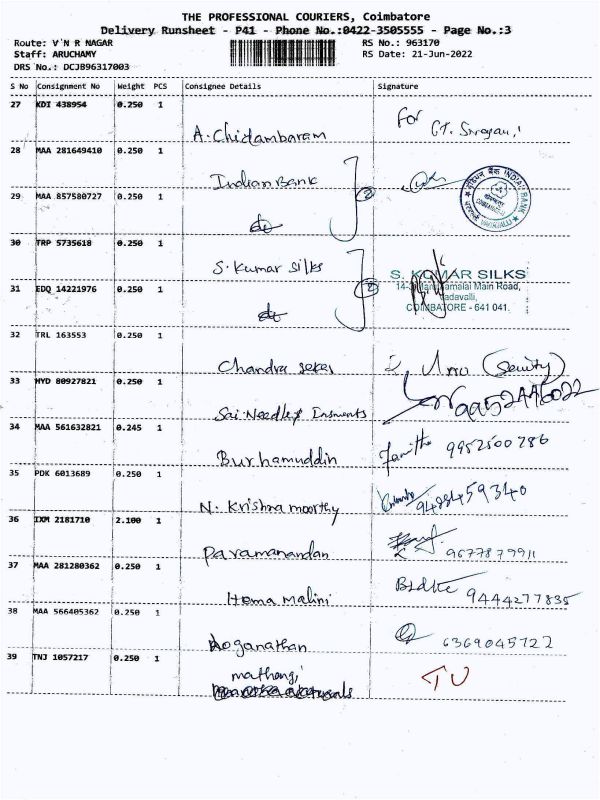 THE PROFESSIONAL COURIERS, Coimbatore
Delivery Runsheet - P41 - Phone No.:0422-3505555 - Page No.:3
Route: V'N R NAGAR RS No.: 963170
Staff: ARUCHAMY RS Date: 21-Jun-2022
DRS No.: DCJB96317003
S No Consignment No Weight PCS Consignee Details Signature
27 KDI 438954 0.250 1
A. Chidambaram For
28 MAA 281649410 0.250 1
Indian Bank 2 INDIAN BANK
29 MAA 857580727 0.250 1
do
30 TRP 5735618 0.250 1
S. Kumar Silks 2 S. KUMAR SILKS
Main Road,
31 EDQ 14221976 0.250 1
Vadavalli,
do COIMBATORE - 641 041.
32 TRL 163553 0.250 1
Chandra seker
33 HYD 80927821 0.250 1
Sai Needle
34 MAA 561632821 0.245 1
Burhamuddin 9952500786
35 PDK 6013689 0.250 1
N. Krishna moorthy 9488459340
36 IXM 2181710 2.100 1
Paramanandan 9677879911
37 MAA 281280362 0.250 1
Hema Malini 9444277835
38 MAA 566405362 0.250 1
Loganathan 6369045722
39 TNJ 1057217 0.250 1
mathangi TU